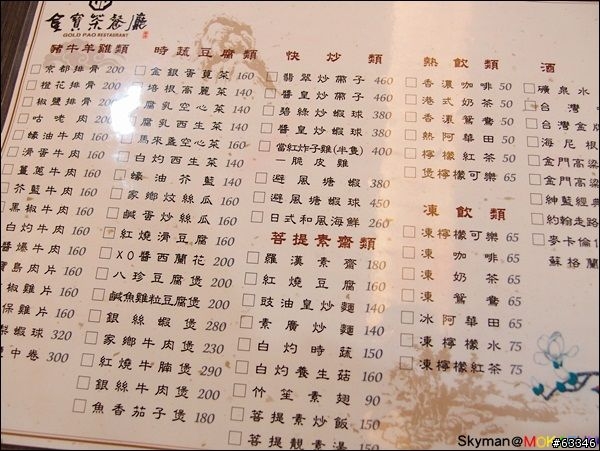 金寶茶餐廳
GOLD PAO RESTAURANT
豬牛羊雞類
京都排骨 200
橙花排骨 200
椒鹽排骨 200
咕咾肉 200
蠔油牛肉 160
滑蛋牛肉 160
薑蔥牛肉 160
芥藍牛肉 160
黑椒牛肉 160
白灼牛肉 160
醬爆牛肉 160
寶島肉片 160
椒雞片 160
保雞片 160
蝦球 320
中卷 300
時蔬豆腐類
金銀蛋莧菜 160
培根高麗菜 140
腐乳空心菜 140
腐乳西生菜 140
馬來盞空心菜 160
白灼西生菜 140
蠔油芥藍 140
家鄉炆絲瓜 160
鹹蛋炒絲瓜 160
紅燒滑豆腐 160
XO醬西蘭花 200
八珍豆腐煲 200
鹹魚雞粒豆腐煲 200
銀絲蝦煲 280
家鄉牛肉煲 230
紅燒牛腩煲 290
銀絲牛肉煲 200
魚香茄子煲 180
快炒類
翡翠炒帶子 460
醬皇炒帶子 460
碧綠炒蝦球 380
醬皇炒蝦球 380
當紅炸子雞(半隻) 400
一脆皮雞
避風塘蝦球 380
避風塘蝦 450
日式和風海鮮 260
菩提素齋類
羅漢素齋 180
紅燒豆腐 160
豉油皇炒麵 140
素廣炒麵 140
白灼時蔬 150
白灼養生菇 160
竹笙素翅 90
菩提素炒飯 150
菩提靚素湯 150
熱飲類
香濃咖啡 50
港式奶茶 50
香濃鴛鴦 50
熱阿華田 50
檸檬紅茶 50
煲檸檬可樂 65
凍飲類
凍檸檬可樂 65
凍咖啡 65
凍奶茶 65
凍鴛鴦 65
冰阿華田 65
凍檸檬水 75
凍檸檬紅茶 75
酒
礦泉水
台灣
台灣金牌
海尼根
金門高粱
金門高粱
紳藍經典
約翰走路
麥卡倫1
蘇格蘭
Skyman@MO
#63346